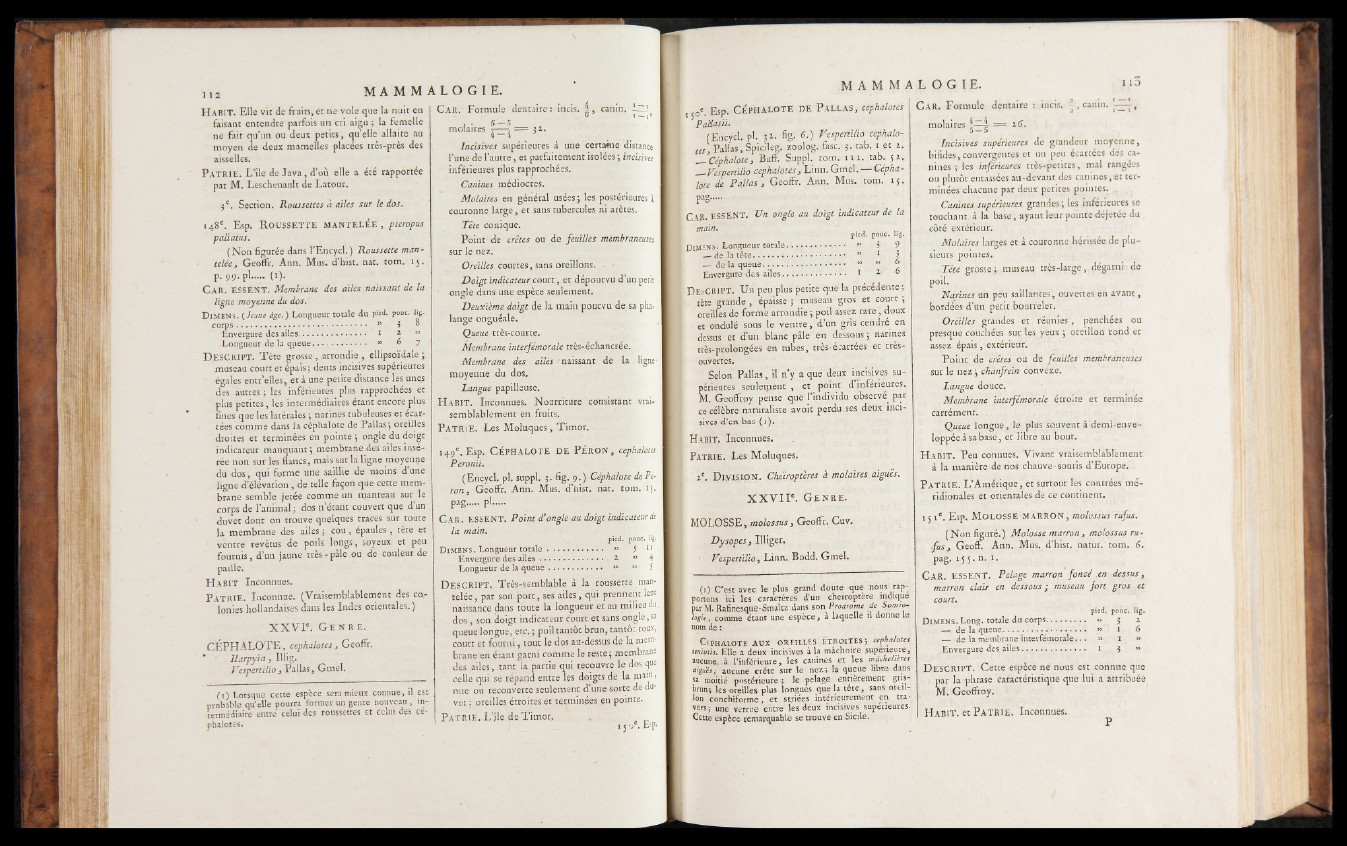 112
MAMMALOGIE.
HABIT. Elle vit de fruits, et ne vole que la nuit en
faisant entendre parfois un cri aigu ; la femelle
ne fait qu'un ou deux petits, qu'elle allaite au
moyen de deux mamelles placées très-près des
aisselles.
PATRIE. L'île de Java, d'où elle a été rapportée
par M. Leschenault de Latour.
3e. Section. Roussettes à ailes sur le dos.
148e. Esp. ROUSSETTE MANTELÉE, pteropus
palliatus.
(Non figurée dans l'Encycl.) Roussette man-
telée, Geoffr. Ann. Mus. d'hist. nat. tom. 15.
p. 99. pl..... (1).
CAR. ESSENT. Membrane des ailes naissant de la
ligne moyenne du dos.
DIMENS. (Jeune âge.) Longueur totale du pied. pouc. lig.
corps .................... » 3 8
Envergure des ailes............... 1 2 »
Longueur de la queue............ » 6 7
DESCRIPT. Tête grosse, arrondie, ellipsoïdale ;
museau court et épais ; dents incisives supérieures
égales entr'elles, et à une petite distance les unes
des autres ; les inférieures plus rapprochées et
plus petites, les intermédiaires étant encore plus
fines que les latérales ; narines tubuleuses et écar-
tées comme dans la céphalote de Pallas ; oreilles
droites et terminées en pointe ; ongle du doigt
indicateur manquant ; membrane des ailes insé-
rée non sur les flancs, mais sur la ligne moyenne
du dos, qui forme une saillie de moins d'une
ligne d'élévation, de telle façon que cette mem-
brane semble jetée comme un manteau sur le
corps de l'animal ; dos n'étant couvert que d'un
duvet dont on trouve quelques traces sur toute
la membrane des ailes ; cou, épaules, tête et
ventre revêtus de poils longs, soyeux et peu
fournis, d'un jaune très-pâle ou de couleur de
paille.
HABIT Inconnues.
PATRIE. Inconnue. (Vraisemblablement des co-
lonies hollandaises dans les Indes orientales.)
XXVIe. GENRE.
CÉPHALOTE, cephalotes, Geoffr.
Harpyia, Illig.
Vespertilio, Pallas, Gmel.
(1) Lorsque cette espèce sera mieux connue, il est
probable qu'elle pourra former un genre nouveau, in-
termédiaire entre celui des roussettes et celui des cé-
phalotes.
CAR. Formule dentaire : incis. 4/6, canin. 1—1/1—1,
molaires 5—5/4—4 = 32.
Incisives supérieures à une certaine distance
l'une de l'autre, et parfaitement isolées ; incisives
inférieures plus rapprochées.
Canines médiocres.
Molaires en général usées ; les postérieures à
couronne large, et sans tubercules ni arêtes.
Tête conique.
Point de crêtes ou de feuilles membraneuses
sur le nez.
Oreilles courtes, sans oreillons.
Doigt indicateur court, et dépourvu d'un petit
ongle dans une espèce seulement.
Deuxième doigt de la main pourvu de sa pha-
lange onguéale.
Queue très-courte.
Membrane interfémorale très-échancrée.
Membrane des ailes naissant de la ligne
moyenne du dos.
Langue papilleuse.
HABIT. Inconnues. Nourriture consistant vrai-
semblablement en fruits.
PATRIE. Les Moluques, Timor.
149e. Esp. CÉPHALOTE DE PÉRON, cephalotes
Peronii.
(Encycl. pl. suppl. 3. fig. 9.) Céphalote de Pé-
ron, Geoffr. Ann. Mus. d'hist. nat. tom. 15.
pag..... pl.....
CAR. ESSENT. Point d'ongle au doigt indicateur de
la main.
pied. pouc. lig.
DIMENS. Longueur totale ............ » 5 11
Envergure des ailes ............. 2 » 4
Longueur de la queue ............ » » 5
DESCRIPT. Très-semblable à la roussette man-
telée, par son port, ses ailes, qui prennent leur
naissance dans toute la longueur et au milieu du
dos, son doigt indicateur court et sans ongle, sa
queue longue, etc. ; poil tantôt brun, tantôt roux,
court et fourni, tout le dos au-dessus de la mem-
brane en étant garni comme le reste ; membrane
des ailes, tant la partie qui recouvre le dos que
celle qui se répand entre les doigts de la main,
nue ou recouverte seulement d'une sorte de du-
vet ; oreilles étroites et terminées en pointe.
PATRIE. L'île de Timor.
150e. Esp.
MAMMALOGIE.
113
150e. Esp. CÉPHALOTE DE PALLAS, cephalotes
Pallasii.
(Encycl. pl. 32. fig. 6.) Vespertilio cephalo-
tes, Pallas, Spicileg. zoolog. fasc. 3. tab. 1 et 2.
— Céphalote, Buff. Suppl. tom. 111. tab. 52.
— Vespertilio cephalotes, Linn. Gmel. — Cépha-
lote de Pallas, Geoffr. Ann. Mus. tom. 15.
pag.....
CAR. ESSENT. Un ongle au doigt indicateur de la
main.
pied. pouc. lig.
DIMENS. Longueur totale............. » 3 9
— de la tête.................... » 1 3
— de la queue.................. » » 6
Envergure des ailes.............. 1 2 6
DESCRIPT. Un peu plus petite que la précédente ;
tête grande, épaisse ; museau gros et court ;
oreilles de forme arrondie ; poil assez rare, doux
et ondulé sous le ventre, d'un gris cendré en
dessus et d'un blanc pâle en dessous ; narines
très-prolongées en tubes, très-écartées et très-
ouvertes.
Selon Pallas, il n'y a que deux incisives su-
périeures seulement, et point d'inférieures.
M. Geoffroy pense que l'individu observé par
ce célèbre naturaliste avoit perdu ses deux inci-
sives d'en bas (1).
HABIT. Inconnues.
PATRIE. Les Moluques.
2e. DIVISION. Cheiroptères à molaires aiguës.
XXVIIe. GENRE.
MOLOSSE, molossus, Geoffr. Cuv.
Dysopes, Illiger.
Vespertilio, Linn. Bodd. Gmel.
(1) C'est avec le plus grand doute que nous rap-
portons ici les caractères d'un cheiroptère indiqué
par M. Rafinesque-Smaltz dans son Prodrome de Somio-
logie, comme étant une espèce, à laquelle il donne le
nom de :
CÉPHALOTE AUX OREILLES ÉTROITES ; cephalotes
teniotis. Elle a deux incisives à la mâchoire supérieure,
aucune à l'inférieure, les canines et les mâchelières
aiguës ; aucune crête sur le nez ; la queue libre dans
sa moitié postérieure ; le pelage entièrement gris-
brun ; les oreilles plus longues que la tête, sans oreil-
lon conchiforme, et striées intérieurement en tra-
vers ; une verrue entre les deux incisives supérieures.
Cette espèce remarquable se trouve en Sicile.
CAR. Formule dentaire : incis. 2/2, canin. 1—1/1—1,
molaires 4—4/5—5 = 26.
Incisives supérieures de grandeur moyenne,
bifides, convergentes et un peu écartées des ca-
nines ; les inférieures très-petites, mal rangées
ou plutôt entassées au-devant des canines, et ter-
minées chacune par deux petites pointes.
Canines supérieures grandes ; les inférieures se
touchant à la base, ayant leur pointe déjetée du
côté extérieur.
Molaires larges et à couronne hérissée de plu-
sieurs pointes.
Tête grosse ; museau très-large, dégarni de
poil.
Narines un peu saillantes, ouvertes en avant,
bordées d'un petit bourrelet.
Oreilles grandes et réunies, penchées ou
presque couchées sur les yeux ; oreillon rond et
assez épais, extérieur.
Point de crêtes ou de feuilles membraneuses
sur le nez ; chanfrein convexe.
Langue douce.
Membrane interfémorale étroite et terminée
carrément.
Queue longue, le plus souvent à demi-enve-
loppée à sa base, et libre au bout.
HABIT. Peu connues. Vivant vraisemblablement
à la manière de nos chauve-souris d'Europe.
PATRIE. L'Amérique, et surtout les contrées mé-
ridionales et orientales de ce continent.
151e. Esp. MOLOSSE MARRON, molossus rufus.
(Non figuré.) Molosse marron, molossus ru-
fus, Geoff. Ann. Mus. d'hist. natur. tom. 6.
pag. 155. n. 1.
CAR. ESSENT. Pelage marron foncé en dessus,
marron clair en dessous ; museau fort gros et
court.
pied. pouc. lig.
DIMENS. Long. totale du corps......... » 3 2
— de la queue.................. » 1 6
— de la membrane interfémorale... » 1 »
Envergure des ailes.............. 1 3 »
DESCRIPT. Cette espèce ne nous est connue que
par la phrase caractéristique que lui a attribuée
M. Geoffroy.
HABIT. et PATRIE. Inconnues.
P